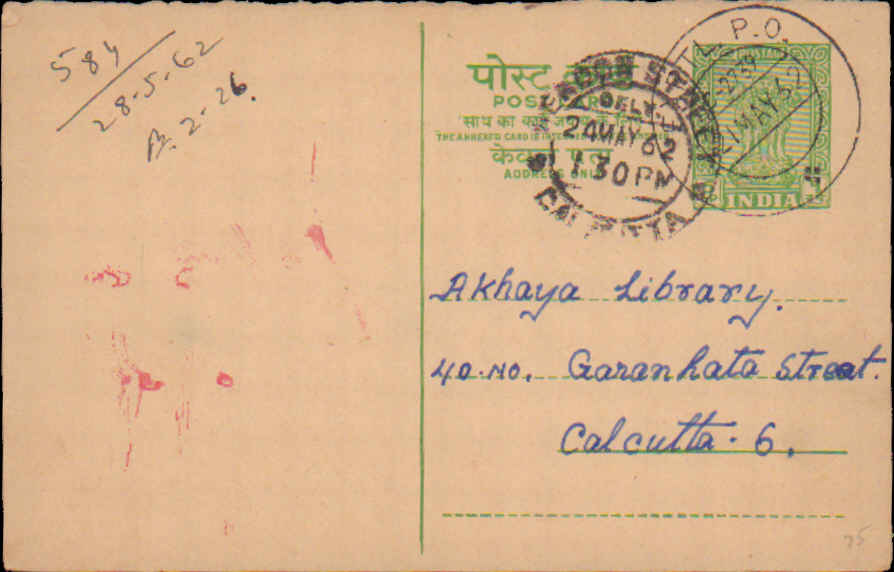 584
28-5-62
2-26.
पोस्ट
POST CARD
THE ANNEXED CARD IS INTENDED
केवल पता
ADDRESS ONLY
BEADON STREET
DELY.
24 MAY 62
1 30 PM
CALCUTTA
P.O.
21 MAY 62
INDIA
Akhaya Library.
40.NO. Garanhata Streat.
Calcutta. 6.
75